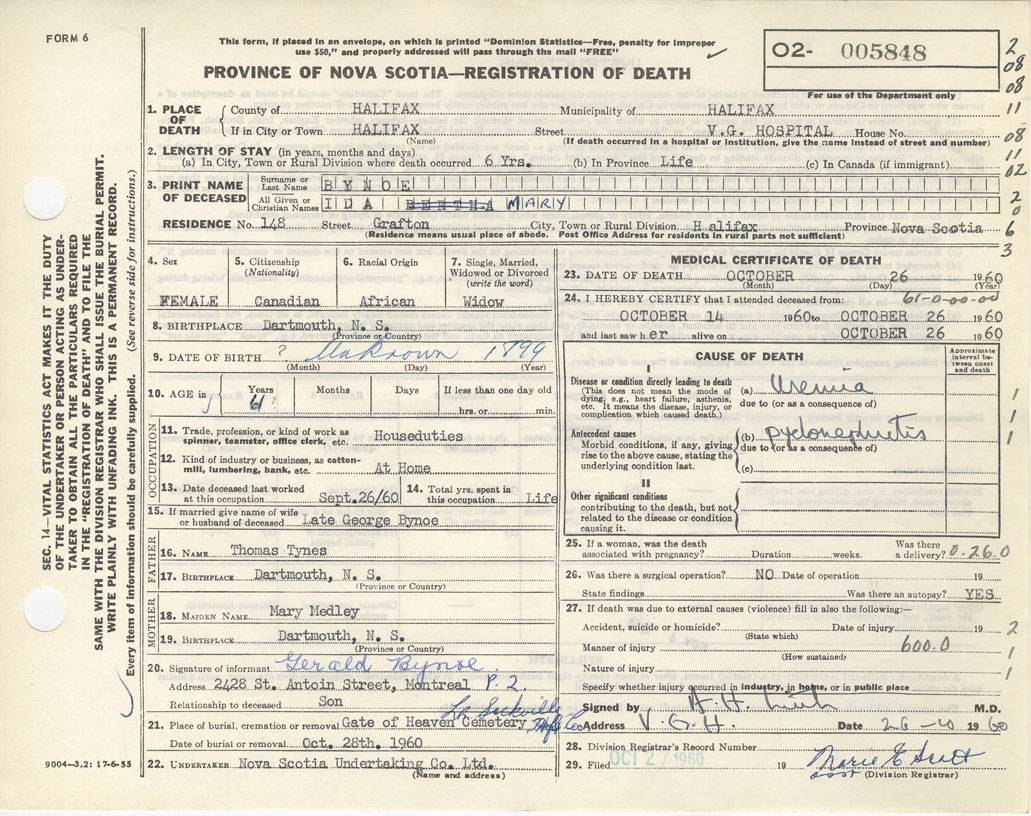 FORM 6
This form, if placed in an envelope, on which is printed "Dominion Statistics—Free, penalty for improper
use $50," and properly addressed will pass through the mail "FREE"
PROVINCE OF NOVA SCOTIA—REGISTRATION OF DEATH
02- 005848
For use of the Department only
2
08
08
11
08
11
02
2
0
6
3
1. PLACE OF DEATH
County of HALIFAX Municipality of HALIFAX
If in City or Town HALIFAX Street V.G. HOSPITAL House No.
(Name) (If death occurred in a hospital or institution, give the name instead of street and number)
2. LENGTH OF STAY (in years, months and days)
(a) In City, Town or Rural Division where death occurred 6 Yrs. (b) In Province Life (c) In Canada (if immigrant)
3. PRINT NAME OF DECEASED
Surname or Last Name BYNOE
All Given or Christian Names IDA BERTHA MARY
RESIDENCE No. 148 Street Grafton City, Town or Rural Division Halifax Province Nova Scotia
(Residence means usual place of abode. Post Office Address for residents in rural parts not sufficient)
4. Sex
FEMALE
5. Citizenship
(Nationality)
Canadian
6. Racial Origin
African
7. Single, Married,
Widowed or Divorced
(write the word)
Widow
8. BIRTHPLACE Dartmouth, N. S.
(Province or Country)
9. DATE OF BIRTH ? Unknown 1899
(Month) (Day) (Year)
10. AGE in Years Months Days If less than one day old
61 hrs. or min.
OCCUPATION
11. Trade, profession, or kind of work as
spinner, teamster, office clerk, etc. Houseduties
12. Kind of industry or business, as cotton-
mill, lumbering, bank, etc. At Home
13. Date deceased last worked
at this occupation Sept.26/60
14. Total yrs. spent in
this occupation Life
15. If married give name of wife
or husband of deceased Late George Bynoe
FATHER
16. NAME Thomas Tynes
17. BIRTHPLACE Dartmouth, N. S.
(Province or Country)
MOTHER
18. MAIDEN NAME Mary Medley
19. BIRTHPLACE Dartmouth, N. S.
(Province or Country)
20. Signature of informant Gerald Bynoe
Address 2428 St. Antoin Street, Montreal P.2
Relationship to deceased Son
21. Place of burial, cremation or removal Gate of Heaven Cemetery Lr Sackville Hfx Co
Date of burial or removal Oct. 28th. 1960
22. UNDERTAKER Nova Scotia Undertaking Co. Ltd.
(Name and address)
MEDICAL CERTIFICATE OF DEATH
23. DATE OF DEATH OCTOBER 26 1960
(Month) (Day) (Year)
61-0-00-00
24. I HEREBY CERTIFY that I attended deceased from:
OCTOBER 14 1960 to OCTOBER 26 1960
and last saw her alive on OCTOBER 26 1960
CAUSE OF DEATH
Approximate
interval be-
tween onset
and death
I
Disease or condition directly leading to death
(This does not mean the mode of
dying, e.g., heart failure, asthenia,
etc. It means the disease, injury, or
complication which caused death.)
(a) Uremia
due to (or as a consequence of)
Antecedent causes
Morbid conditions, if any, giving
rise to the above cause, stating the
underlying condition last.
(b) pyelonephritis
due to (or as a consequence of)
(c)
II
Other significant conditions
contributing to the death, but not
related to the disease or condition
causing it.
1
1
1
25. If a woman, was the death
associated with pregnancy? Duration weeks. Was there
a delivery? 0.26.0
26. Was there a surgical operation? NO Date of operation 19
State findings Was there an autopsy? YES
27. If death was due to external causes (violence) fill in also the following:—
Accident, suicide or homicide? Date of injury 19 2
(State which)
Manner of injury 600.0 1
(How sustained)
Nature of injury 1
Specify whether injury occurred in industry, in home, or in public place
Signed by A.H. M.D.
Address V.G.H. Date 26-10 1960
28. Division Registrar's Record Number
29. Filed OCT 27 1960 19 Marie E Scott
(Division Registrar)
SEC. 14—VITAL STATISTICS ACT MAKES IT THE DUTY
OF THE UNDERTAKER OR PERSON ACTING AS UNDER-
TAKER TO OBTAIN ALL THE PARTICULARS REQUIRED
IN THE "REGISTRATION OF DEATH" AND TO FILE THE
SAME WITH THE DIVISION REGISTRAR WHO SHALL ISSUE THE BURIAL PERMIT.
WRITE PLAINLY WITH UNFADING INK. THIS IS A PERMANENT RECORD.
Every item of information should be carefully supplied. (See reverse side for instructions.)
9004—3.2: 17-6-55